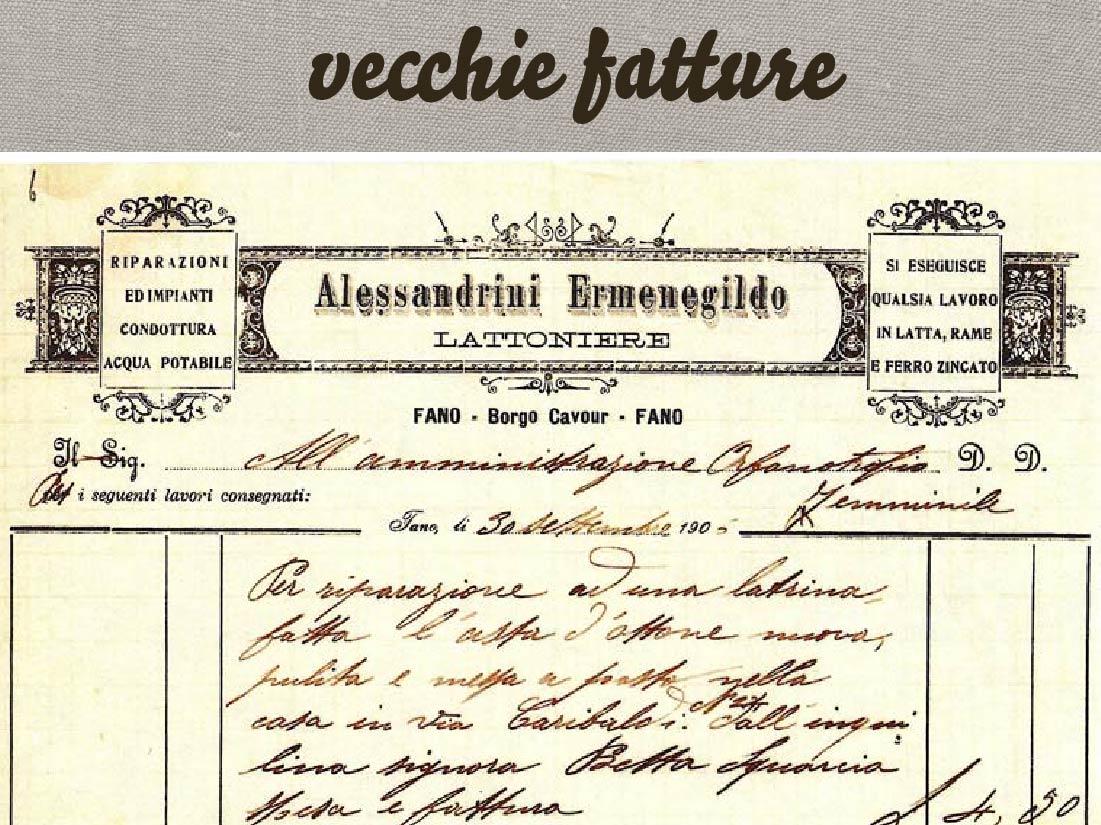 vecchie fatture
6
RIPARAZIONI
ED IMPIANTI
CONDOTTURA
ACQUA POTABILE
Alessandrini Ermenegildo
LATTONIERE
SI ESEGUISCE
QUALSIA LAVORO
IN LATTA, RAME
E FERRO ZINCATO
FANO - Borgo Cavour - FANO
Il Sig. All'amministrazione Orfanotrofio D. D.
Femminile
i seguenti lavori consegnati:
Fano, li 30 settembre 190
Per riparazione ad una latrina
fatta l'asta d'ottone nuova,
pulita e messa a posto nella
casa in via Garibaldi. dall'inqui
lina signora Betta Squarcia
spesa e fattura £ 4, 50